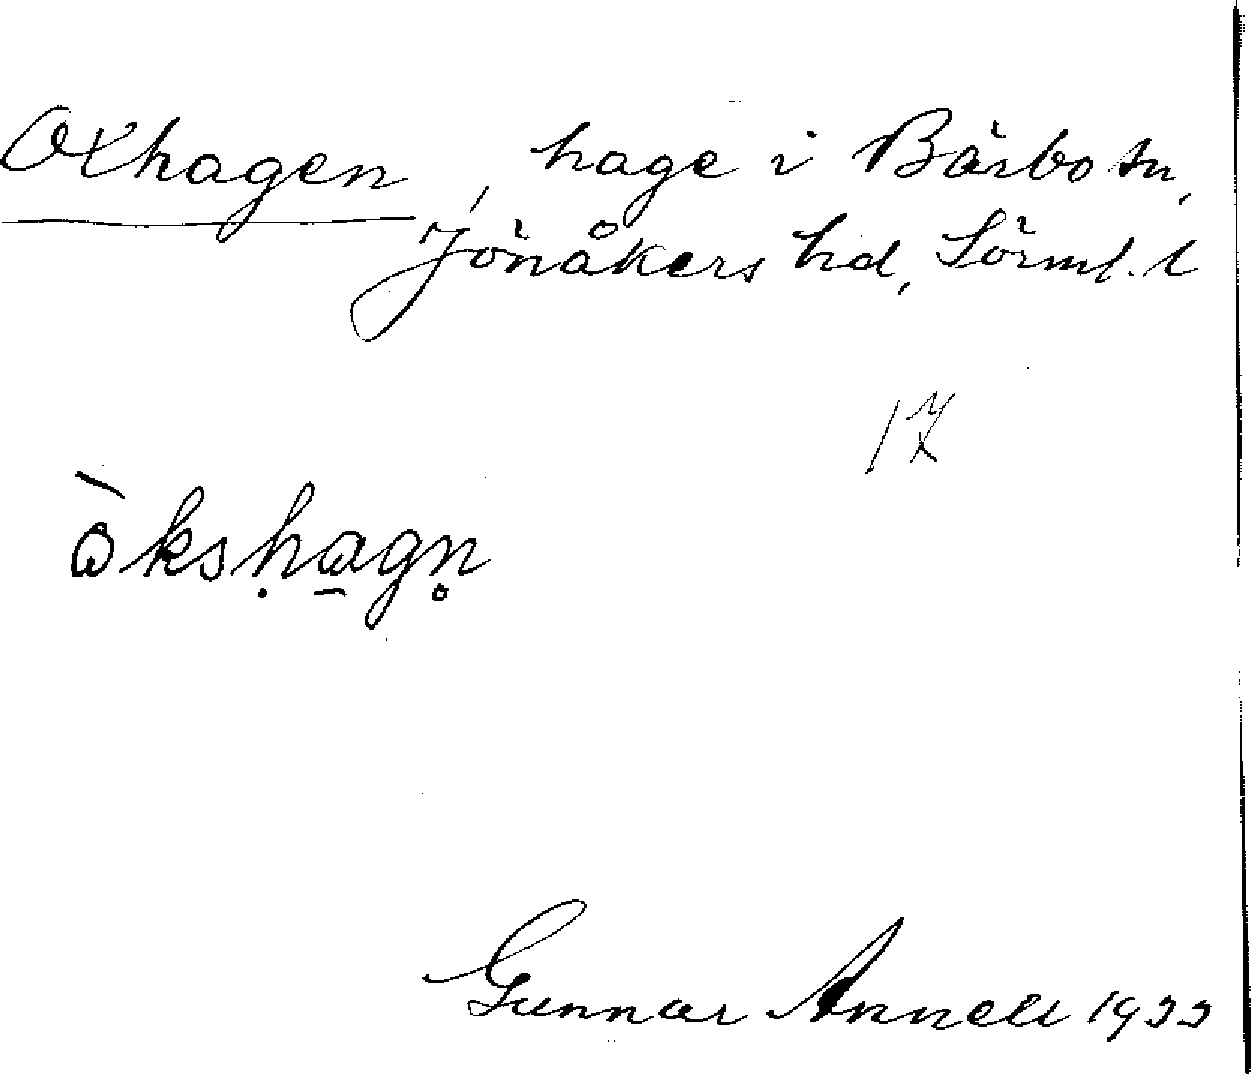 Oxhagen, hage i Bärbo sn,
Jönåkers hd, Sörml. l
17
Gunnar Annell 1933